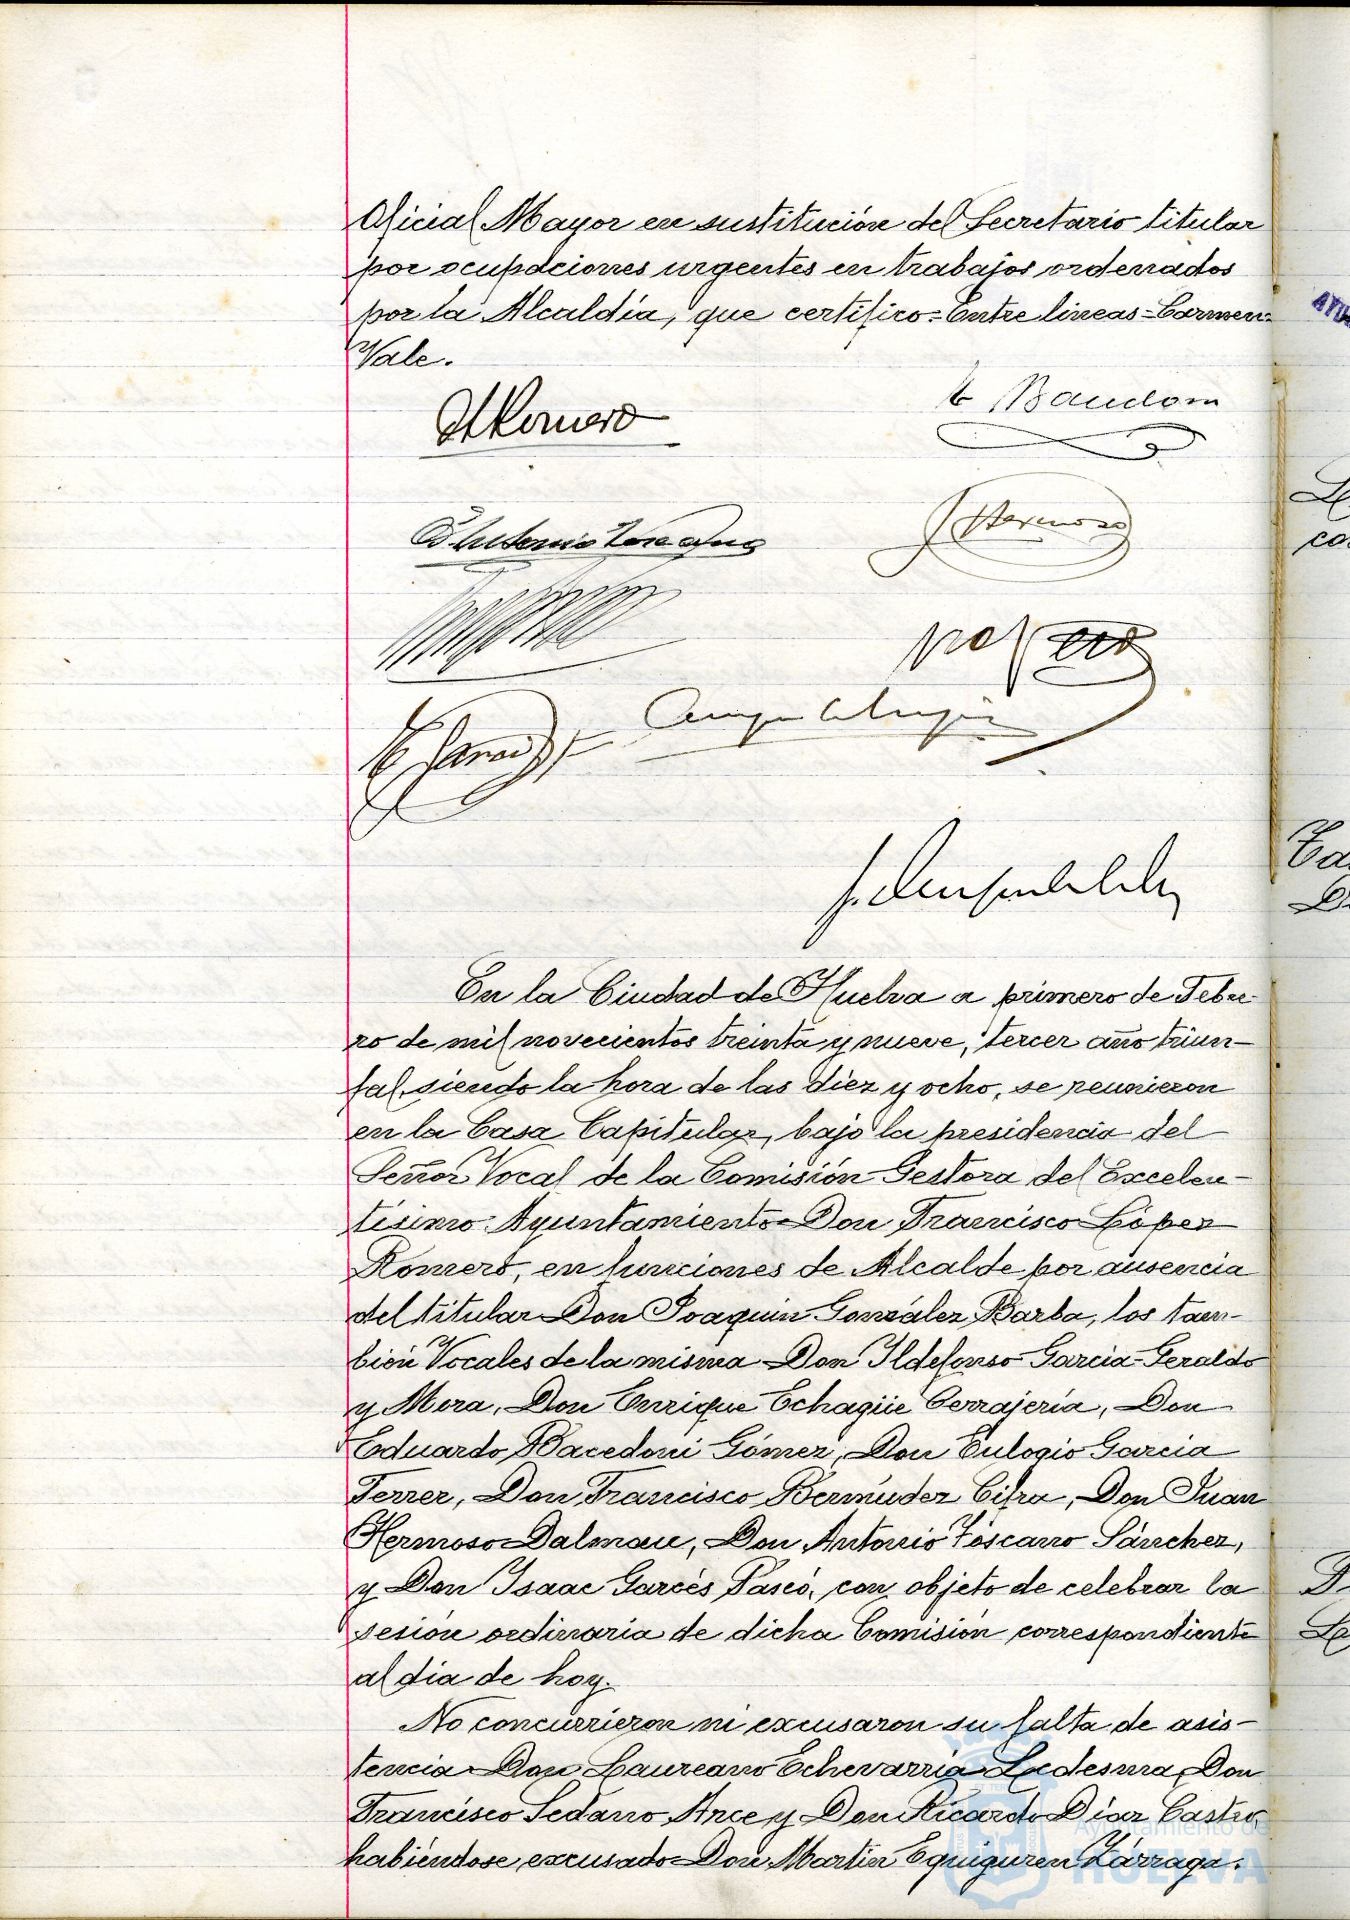 Oficial Mayor en sustitución del Secretario titular
por ocupaciones urgentes en trabajos ordenados
por la Alcaldía, que certifico=Entre lineas=Carmen=
Vale.
Romero
Hermoso
En la Ciudad de Huelva a primero de Febre-
ro de mil novecientos treinta y nueve, tercer año triun-
fal, siendo la hora de las diez y ocho, se reunieron
en la Casa Capitular, bajo la presidencia del
Señor Vocal de la Comisión Gestora del Excelen-
tísimo Ayuntamiento Don Francisco López
Romero, en funciones de Alcalde por ausencia
del titular Don Joaquín González Barba, los tam-
bién Vocales de la misma Don Ildefonso García-Geraldo
y Mora, Don Enrique Echagüe Cerrajería, Don
Eduardo Bacedoni Gómez, Don Eulogio García
Ferrer, Don Francisco Bermúdez Cifra, Don Juan
Hermoso Dalmau, Don Antonio Toscano Sánchez,
y Don Isaac Garcés Paseó, con objeto de celebrar la
sesión ordinaria de dicha Comisión correspondiente
al día de hoy.
No concurrieron ni excusaron su falta de asis-
tencia Don Laureano Echevarría Ledesma, Don
Francisco Sedano Arce y Don Ricardo Díaz Castro,
habiéndose excusado Don Martín Eguiguren Zárraga.
Ayuntamiento de
HUELVA